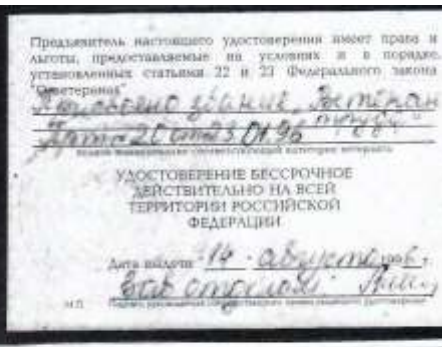 Предъявитель настоящего удостоверения имеет права и
льготы, предоставляемые на условиях и в порядке,
установленных статьями 22 и 23 Федерального закона
"О ветеранах"
Присвоено звание „Ветеран
труда"
от 23.01.96
УДОСТОВЕРЕНИЕ БЕССРОЧНОЕ
ДЕЙСТВИТЕЛЬНО НА ВСЕЙ
ТЕРРИТОРИИ РОССИЙСКОЙ
ФЕДЕРАЦИИ
Дата выдачи "14" августа 1996 г.
Зав отделом
М.П.